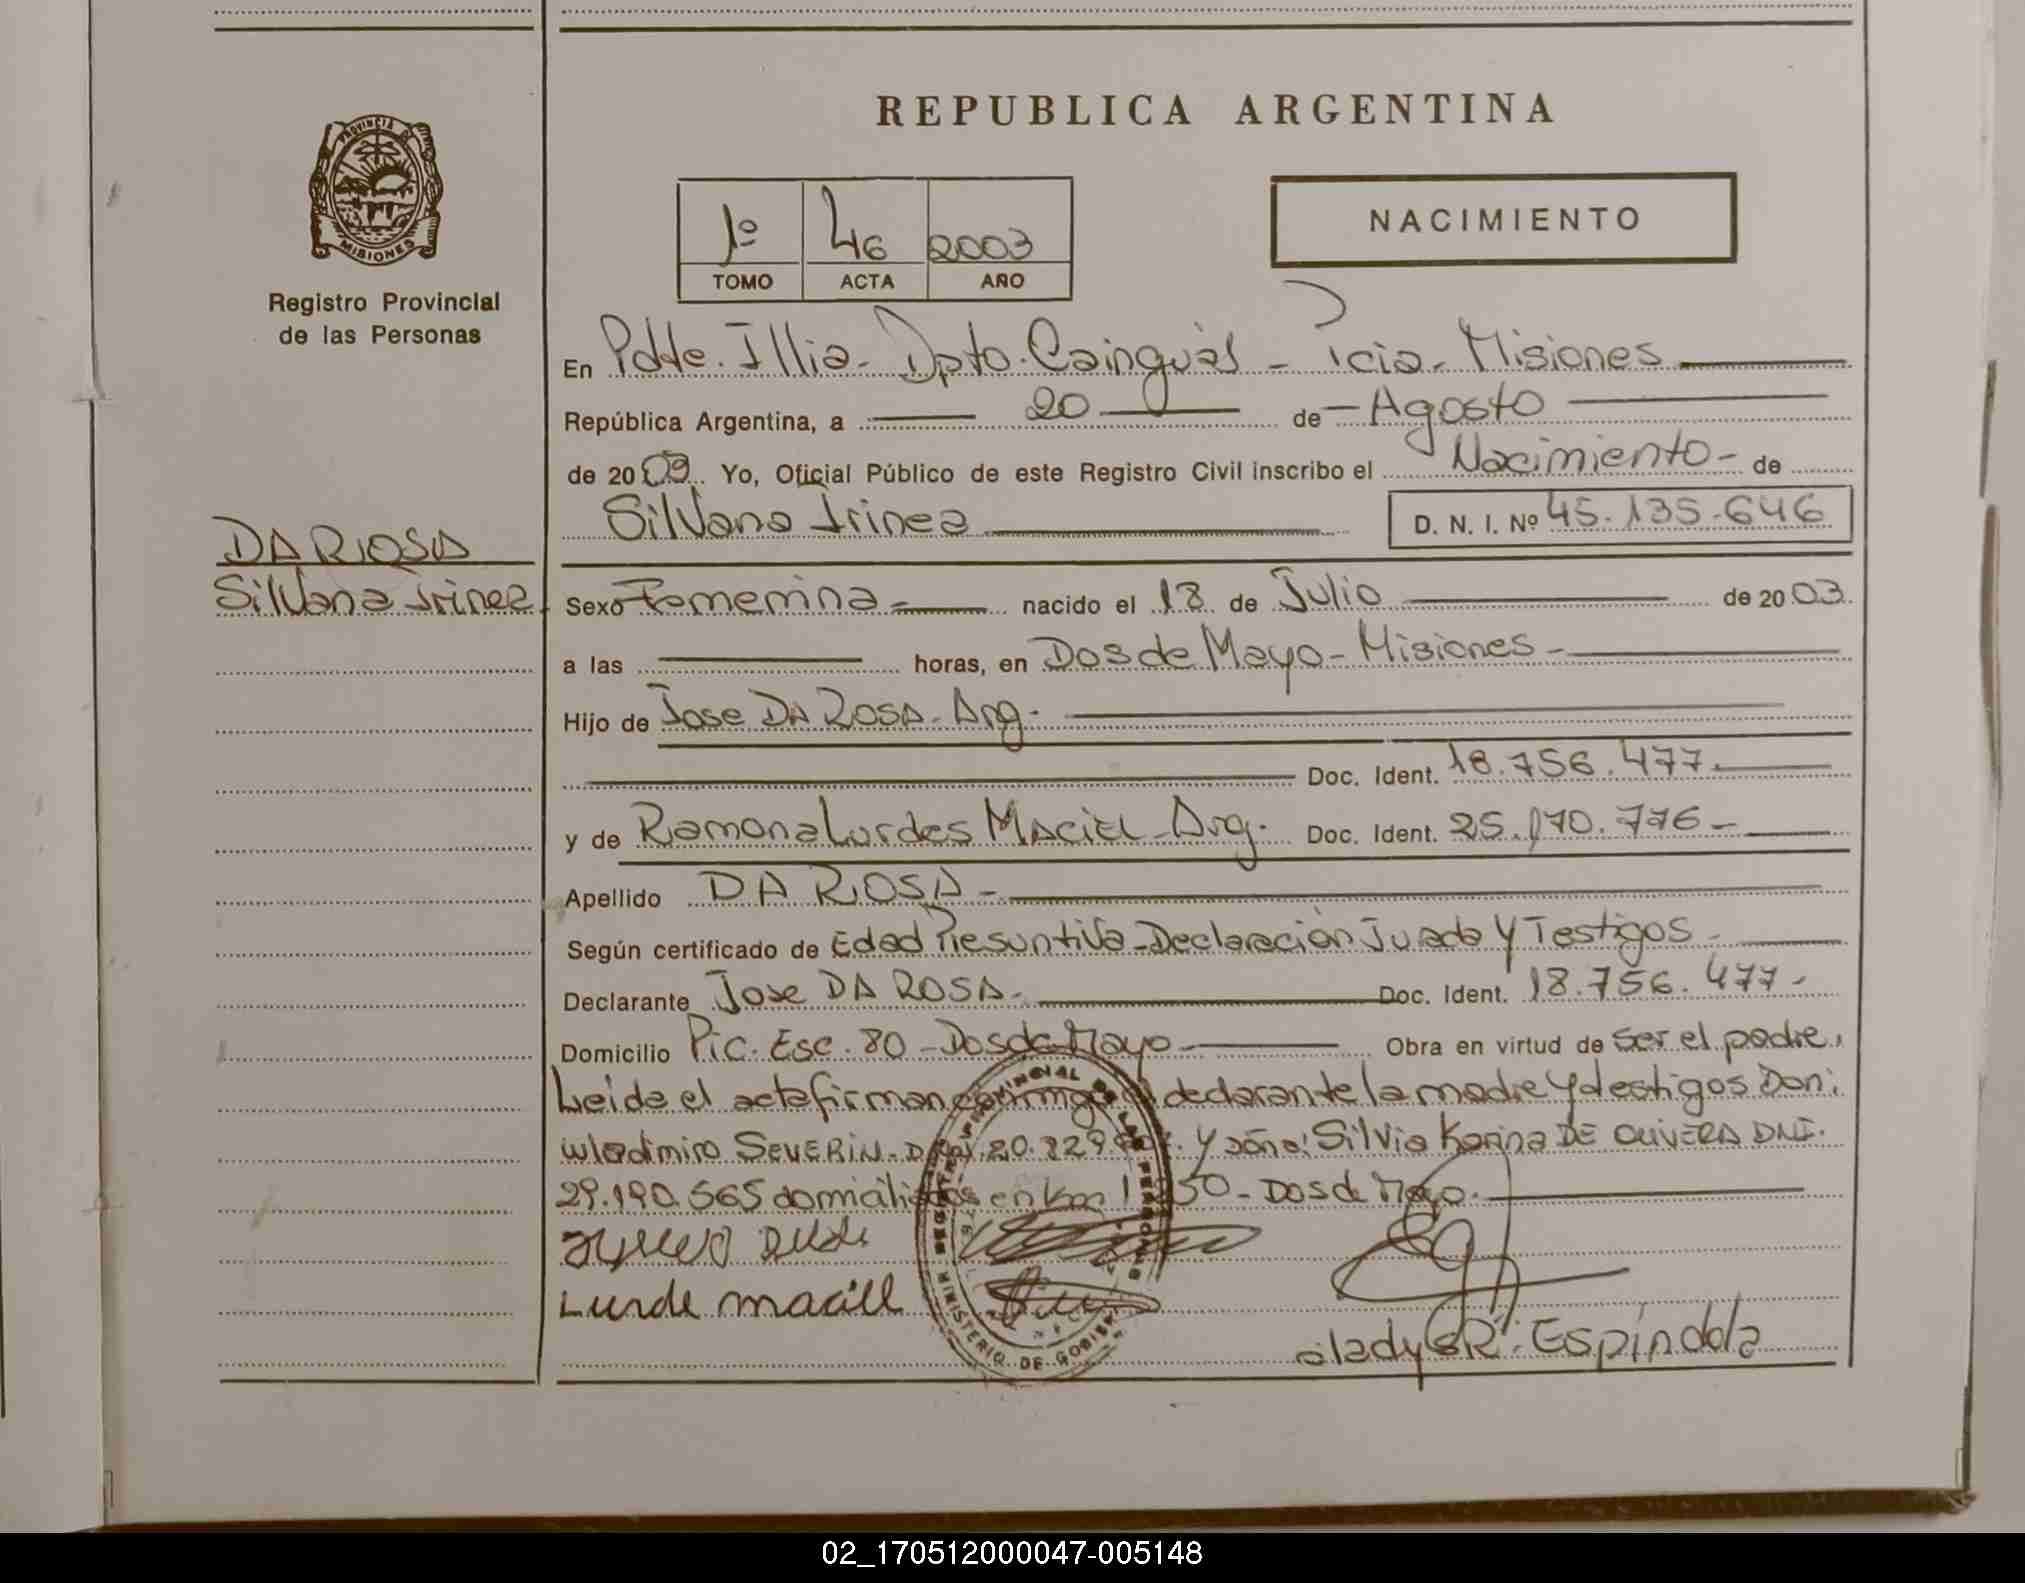 REPUBLICA ARGENTINA
PROVINCIA DE
MISIONES
Registro Provincial
de las Personas
1º 46 2003
TOMO ACTA AÑO
NACIMIENTO
En Pdte. Illia - Dpto. Cainguás - Pcia - Misiones
República Argentina, a 20 de Agosto
de 2003 Yo, Oficial Público de este Registro Civil inscribo el Nacimiento - de
Silvana Irinea D. N. I. Nº 45.135.646
DA ROSA
Silvana Irinea
Sexo Femenina - nacido el 18 de Julio de 2003
a las horas, en Dos de Mayo - Misiones -
Hijo de Jose DA ROSA - Arg.
Doc. Ident. 18.756.477.
y de Ramona Lurdes MACIEL - Arg. Doc. Ident. 25.170.776 -
Apellido DA ROSA -
Según certificado de Edad Presuntiva - Declaración Jurada y Testigos -
Declarante Jose DA ROSA - Doc. Ident. 18.756.477 -
Domicilio Pic. Esc. 80 - Dos de Mayo - Obra en virtud de ser el padre,
Leida el acta firman conmigo declarante la madre y testigos Don:
Wladimiro SEVERIN - 20.829. y doña: Silvia Karina DE OLIVERA DNI.
29.190.565 domiciliados en Km 50 - Dos de Mayo.
Lurde maciel
Gladys R. Espindola
MINISTERIO DE GOBIERNO
02_170512000047-005148